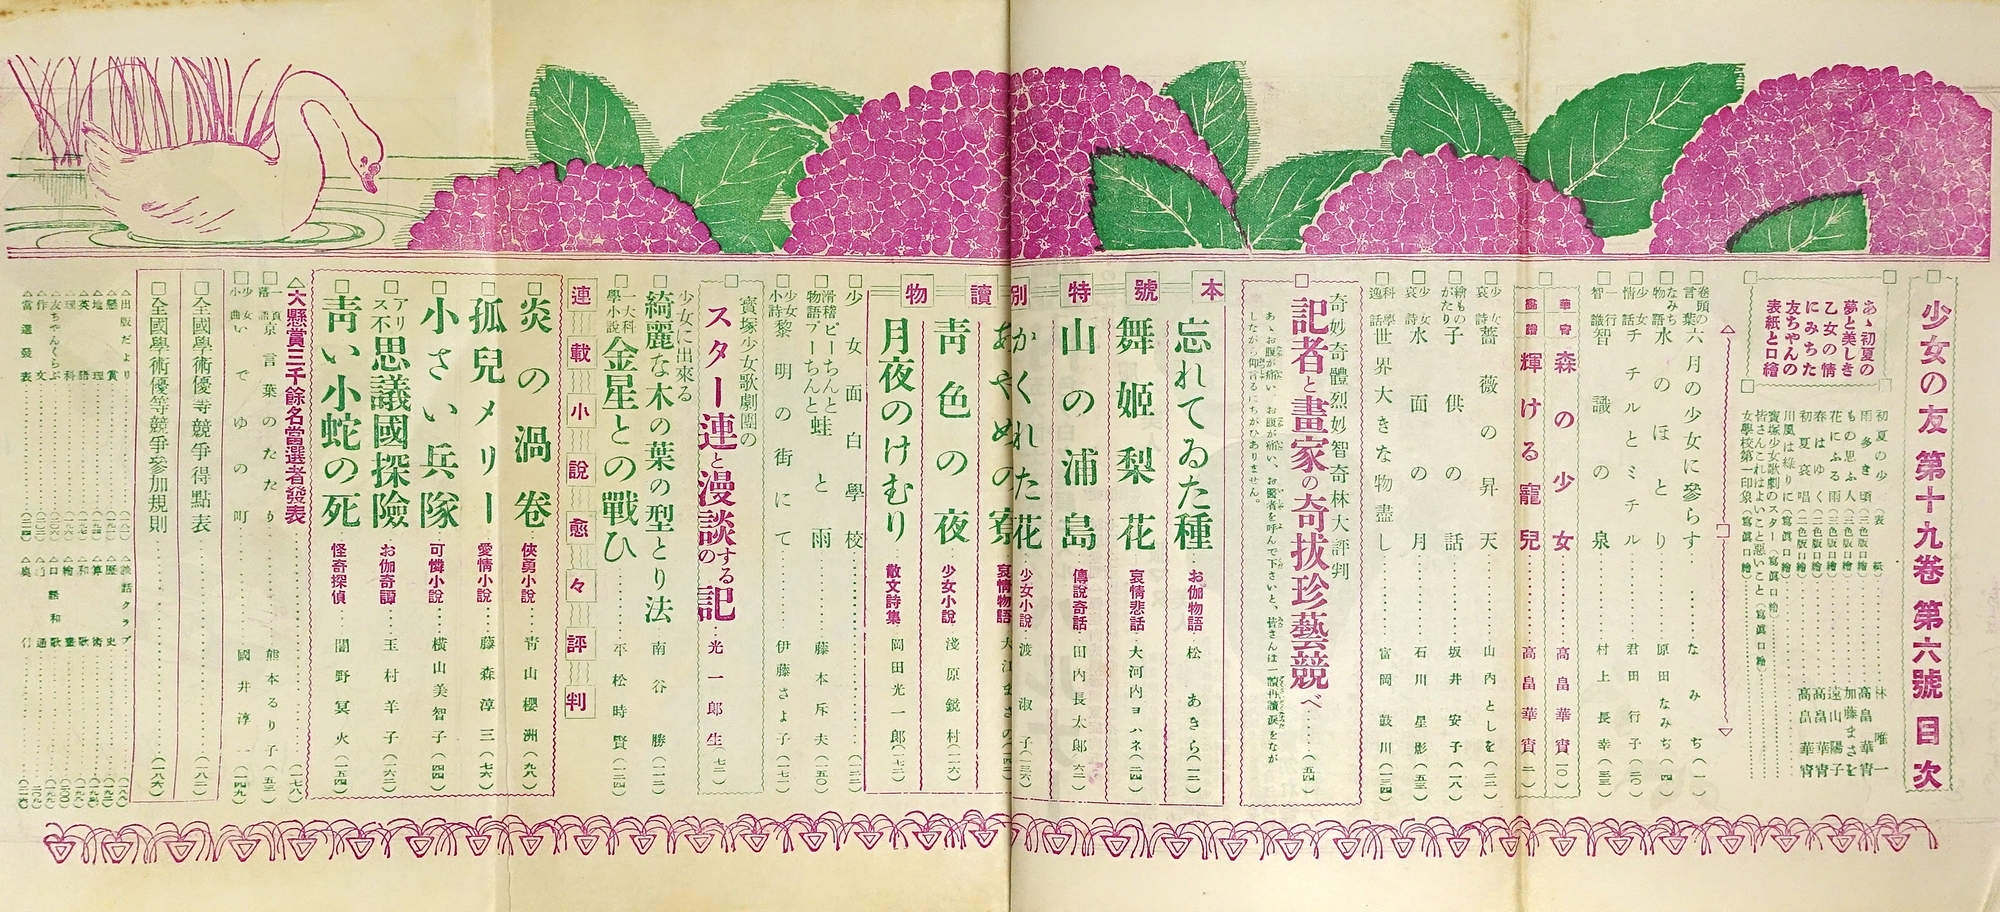 少女の友 第十九卷 第六號 目次
あゝ初夏の
夢と美しき
乙女の情
にみちた
友ちやんの
表紙と口繪
初夏の少女(表紙) 林唯一
雨多き頃(三色版口繪) 高畠華宵
もの思ふ人(三色版口繪) 加藤まさを
花にふる雨(三色版口繪) 遠山陽子
春はゆく(二色版口繪) 高畠華宵
初夏哀唱(二色版口繪) 高畠華宵
川風は綠りに(寫眞口繪)
寶塚少女歌劇のスター(寫眞口繪)
皆さんこれはよいこと惡いこと(寫眞口繪)
女學校第一印象(寫眞口繪)
卷頭の言葉 六月の少女に參らす なみぢ(一)
なみぢ物語 水のほとり 原田なみぢ(四)
少女情話 チルとミチル 君田行子(二〇)
一行智識 智識の泉 村上長幸(三三)
華宵畫譜
森の少女 高畠華宵(一〇)
輝ける寵兒 高畠華宵(二)
少女哀詩 薔薇の昇天 山内としを(二二)
繪ものがたり 子供の話 坂井安子(一八)
少女哀詩 水面の月 石川星影(五三)
科學逸話 世界大きな物盡し 富岡鼓川(一三四)
奇妙奇體烈妙智奇林大評判
記者と畫家の奇拔珍藝競べ(五四)
あゝお腹が痛い、お腹が痛い、お醫者を呼んで下さいと、皆さんは一讀再讀淚をながしながら仰言るにちがひありません。
本號特別讀物
忘れてゐた種 お伽物語 松あきら(一二)
舞姬梨花 哀情悲話 大河内ヨハネ(二四)
山の浦島 傳說奇話 田内長太郎(六二)
かくれた花 少女小說 渡淑子(一三六)
あやめの寮 哀情物語 大江まさの
靑色の夜 少女小說 淺原鏡村(二六)
月夜のけむり 散文詩集 岡田光一郎(七二)
少女面白學校(一二二)
滑稽物語 ピーちやんとプーちやんと蛙と雨 藤木斥夫(一五〇)
少女小詩 黎明の街にて 伊藤さよ子(一七二)
寶塚少女歌劇團の
スター連と漫談するの記 光一郎生(七二)
少女に出來る
綺麗な木の葉の型とり法 南谷勝(一一二)
一大科學小說 金星との戰ひ 平松時賢(一二四)
連載小說愈々評判
炎の渦卷 俠勇小說 靑山櫻洲(九八)
孤兒メリー 愛情小說 藤森淳三(七六)
小さい兵隊 可憐小說 橫山美智子(四四)
アリス不思議國探險 お伽奇譚 玉村羊子(一六二)
靑い小蛇の死 怪奇探偵 闇野冥火(一五四)
大懸賞三千餘名當選者發表(一七八)
一頁落語 京言葉のたたり 熊本るり子(五三)
少女小曲 いでゆの町 國井淳一(一四九)
全國學術優等競爭得點表(一八二)
全國學術優等競爭參加規則(一八六)
出版だより
懸賞
地理
英語
理科
友ちやんくらぶ
作文
當選發表
談話クラブ
歷史
算術
和歌
繪畫
口繪和歌